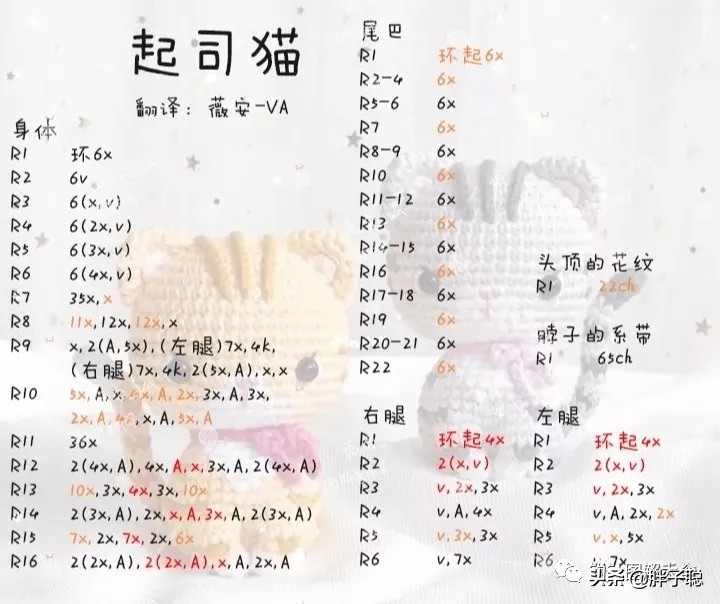 起司猫
翻译：薇安-VA
身体
R1 环6x
R2 6v
R3 6(x,v)
R4 6(2x,v)
R5 6(3x,v)
R6 6(4x,v)
R7 35x,x
R8 11x,12x,12x,x
R9 x,2(A,5x),(左腿)7x,4k,
(右腿)7x,4k,2(5x,A),x,x
R10 5x,A,x,4x,A,2x,3x,A,3x,
2x,A,4x,x,A,5x,A
R11 36x
R12 2(4x,A),4x,A,x,3x,A,2(4x,A)
R13 10x,3x,4x,3x,10x
R14 2(3x,A),2x,x,A,3x,A,2(3x,A)
R15 7x,2x,7x,2x,6x
R16 2(2x,A),2(2x,A),x,A,2x,A
尾巴
R1 环起6x
R2-4 6x
R5-6 6x
R7 6x
R8-9 6x
R10 6x
R11-12 6x
R13 6x
R14-15 6x
R16 6x
R17-18 6x
R19 6x
R20-21 6x
R22 6x
头顶的花纹
R1 22ch
脖子的系带
R1 65ch
右腿
R1 环起4x
R2 2(x,v)
R3 v,2x,3x
R4 v,A,4x
R5 v,3x,3x
R6 v,7x
左腿
R1 环起4x
R2 2(x,v)
R3 v,2x,3x
R4 v,A,2x,2x
R5 v,x,5x
R6 v,7x
头条@胖子聪